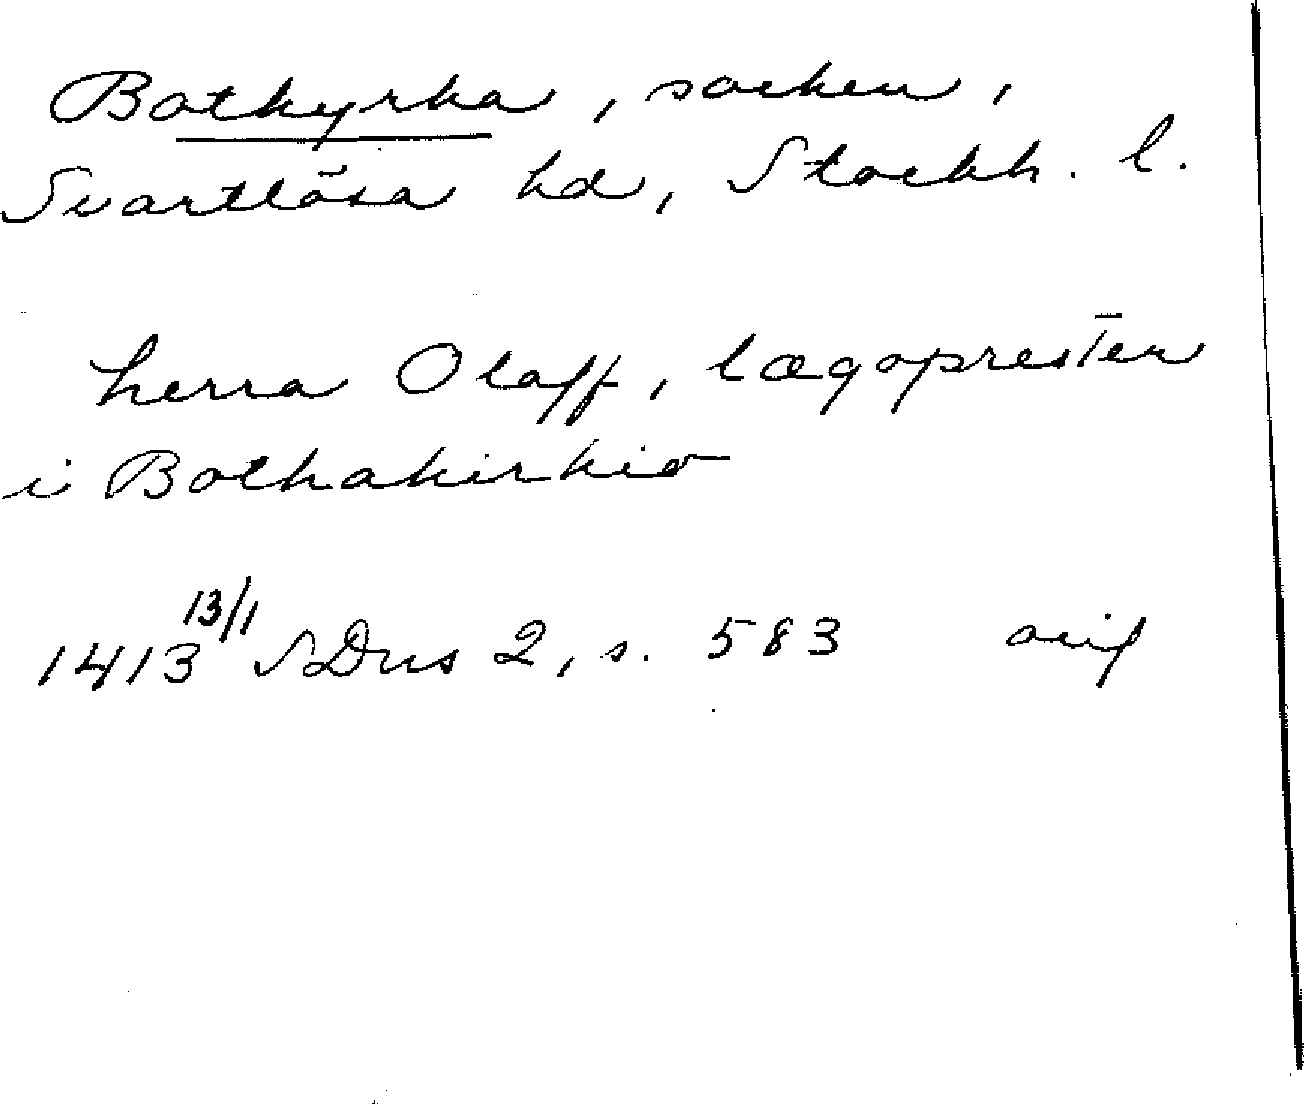 Botkyrka, socken,
Svartlösa hd, Stockh. l.
herra Olaff, lægopresten
i Bothakirkio
1413 13/1 SDns 2, s. 583